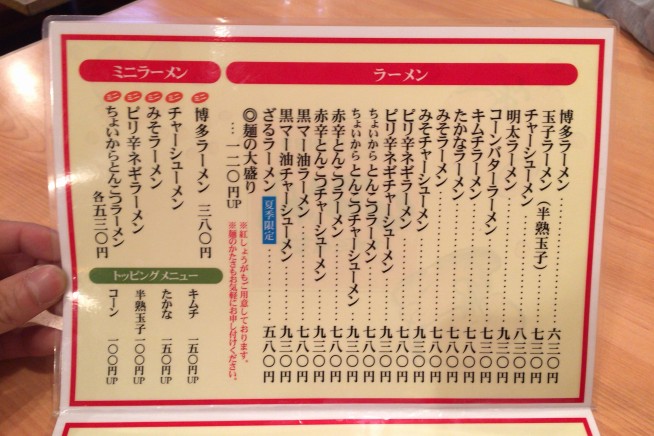 ラーメン
博多ラーメン……六三〇円
玉子ラーメン(半熟玉子)……七三〇円
チャーシューメン……八三〇円
明太ラーメン……九三〇円
コーンバターラーメン……七三〇円
キムチラーメン……七八〇円
たかなラーメン……七八〇円
みそラーメン……七八〇円
みそチャーシューメン……九三〇円
ピリ辛ネギラーメン……七八〇円
ピリ辛ネギチャーシューメン……九三〇円
ちょいからとんこつラーメン……七八〇円
ちょいからとんこつチャーシューメン…九三〇円
赤辛とんこつラーメン……七八〇円
赤辛とんこつチャーシューメン……九三〇円
黒マー油ラーメン……七八〇円
黒マー油チャーシューメン……九三〇円
ざるラーメン 夏季限定……五八〇円
◎麺の大盛り
…一二〇円UP
※紅しょうがもご用意しております。
※麺のかたさもお気軽にお申し付けください。
ミニラーメン
ミニ 博多ラーメン 三八〇円
ミニ チャーシューメン
ミニ みそラーメン
ミニ ピリ辛ネギラーメン
ミニ ちょいからとんこつラーメン
各五三〇円
トッピングメニュー
キムチ 一五〇円UP
たかな 一五〇円UP
半熟玉子 一〇〇円UP
コーン 一〇〇円UP